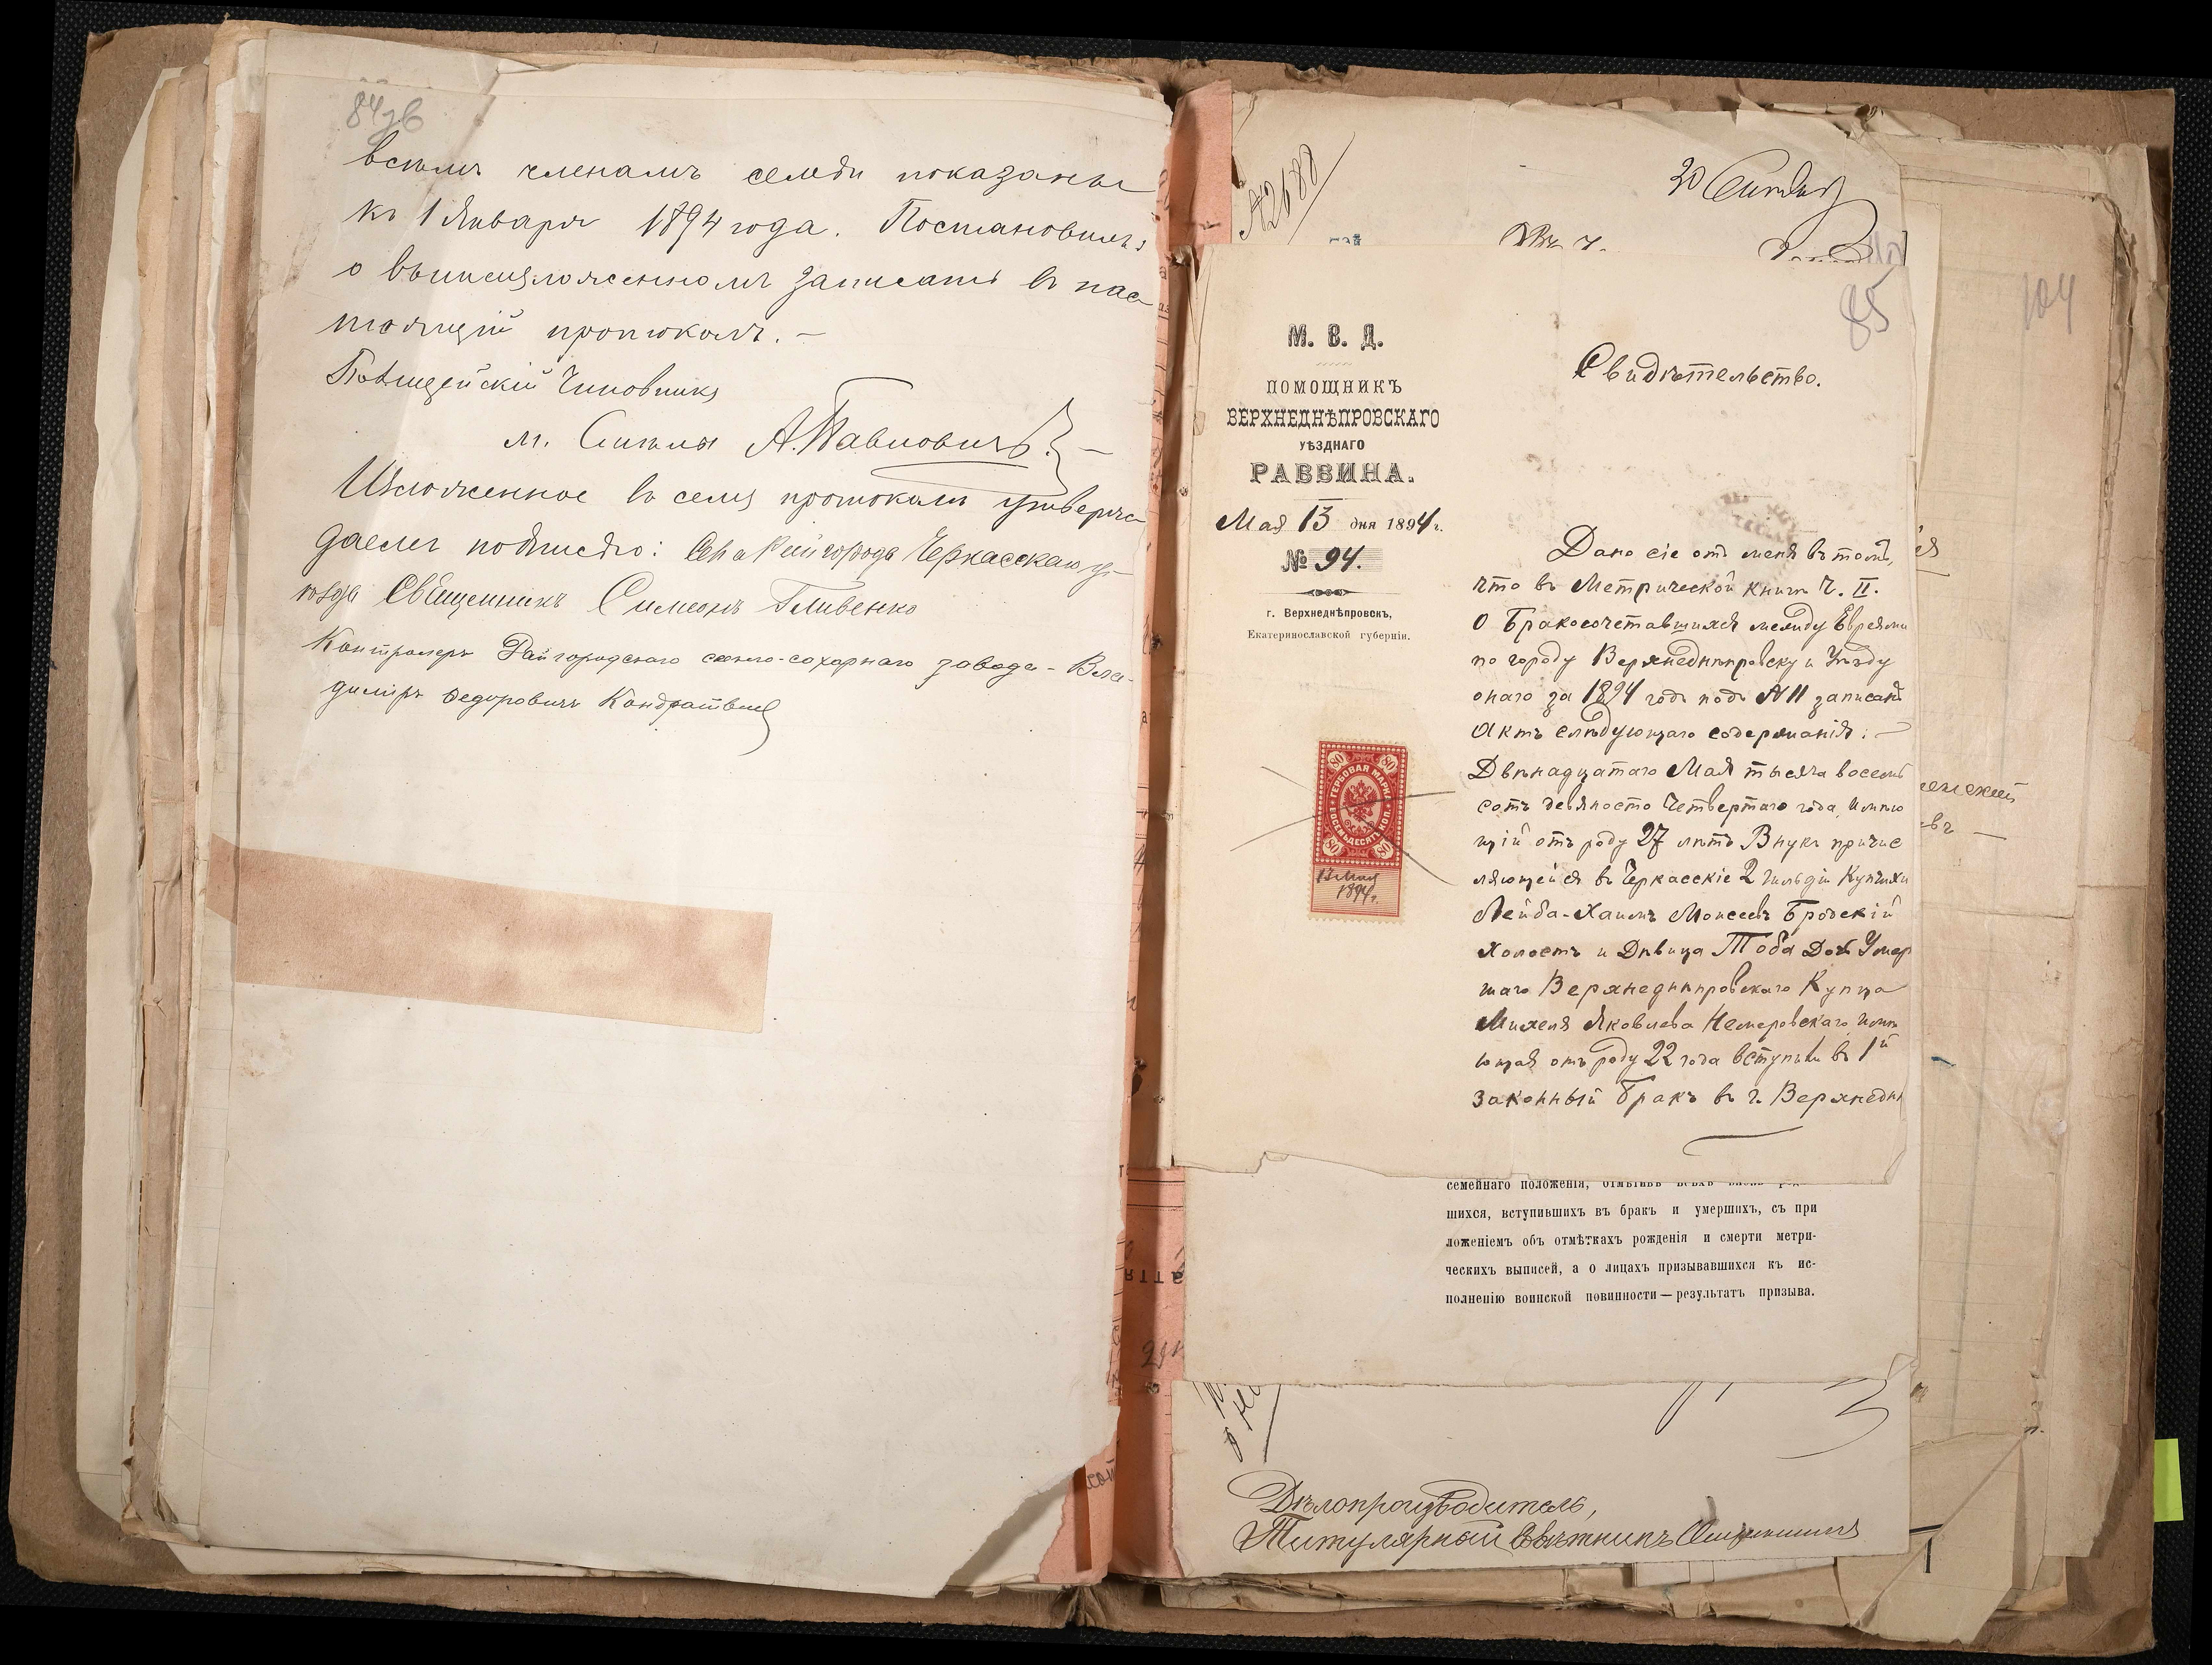 84зв
всѣмъ членамъ семьи показаны
къ 1 Января 1894 года. Постановилъ:
о вышеизложенномъ записать въ нас
тоящій протоколъ. —
Полицейскій Чиновникъ
м. Смѣлы А. Павловичъ. —
Изложенное въ семъ протоколѣ утверж
даемъ подписью: города Черкасскаго у
ѣзда Священникъ Симеонъ Гливенко
Контролеръ Райгородскаго свекло-сахарнаго завода - Вла-
диміръ Федоровичъ Кондратьев
№2688
20
85
104
М. В. Д.
ПОМОЩНИКЪ
ВЕРХНЕДНѢПРОВСКАГО
УѢЗДНАГО
РАВВИНА.
Мая 13 дня 1894 г.
№ 94.
г. Верхнеднѣпровскъ,
Екатеринославской губерніи.
Свидѣтельство.
Дано сіе отъ меня въ томъ,
что въ Метрической книгѣ Ч. II.
о Бракосочетавшихся между Евреями
по городу Верхнеднѣпровску и Уѣзду
онаго за 1894 годъ подъ №11 записанъ
Актъ слѣдующаго содержанія: —
Двѣнадцатаго Мая тысяча восемь
сотъ девяносто Четвертаго года, имѣю
щій отъ роду 27 лѣтъ Внукъ причис
ляющейся въ Черкасскіе 2 Гильдіи Купчихи
Лейба-Хаимъ Моисеевъ Бродскій
Холостъ и Дѣвица Тоба Дочь Умер
шаго Верхнеднѣпровскаго Купца
Михеля Яковлева Немеровскаго имѣ
ющая отъ роду 22 года вступили въ 1й
законный бракъ въ г. Верхнеднѣ
ГЕРБОВАЯ МАРКА
ВОСЕМЬДЕСЯТЪ КОП.
80 80
80 80
13 Мая
1894 г.
семейнаго положенія,
шихся, вступившихъ въ бракъ и умершихъ, съ при
ложеніемъ объ отмѣткахъ рожденія и смерти метри-
ческихъ выписей, а о лицахъ призывавшихся къ ис-
полненію воинской повинности — результатъ призыва.
Дѣлопроизводитель,
Титулярный Совѣтникъ